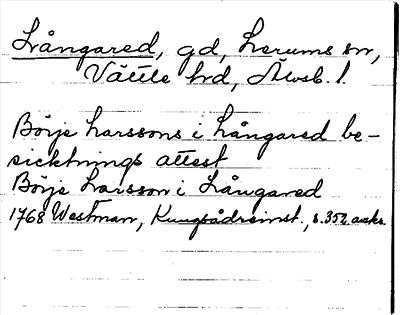 Långared, gd, Lerums sn,
Vättle hd, Älvsb. l.
Börje Larssons i Långared be-
sicktnings attest
Börje Larsson i Långared
1768 Westman, Kungsådreinst., s. 352